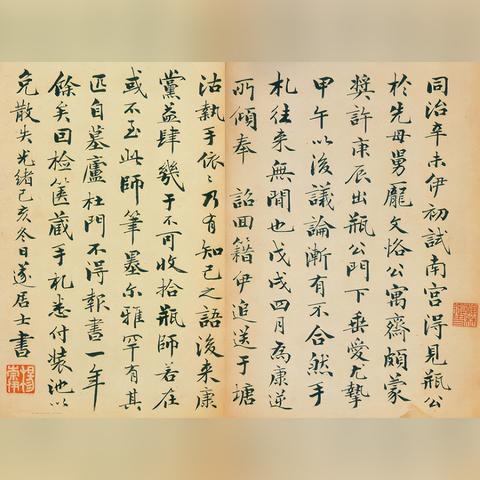 同治辛未伊初試南宮得見瓶公
於先母舅龐文恪公寓齋頗蒙
獎許庚辰出瓶公門下乗愛尤摯
甲午以後議論漸有不合然手
札往来無間也戊戌四月為康逆
所傾奉 詔回籍伊追送于塘
沽執手依〻乃有知己之語後来康
黨益肆幾于不可收拾瓶師若在
或不至此師筆墨尔雅罕有其
匹自墓廬杜門不得報書一年
餘矣因檢篋蔵手札悉付装池以
免散失光緒己亥冬日邃居士書